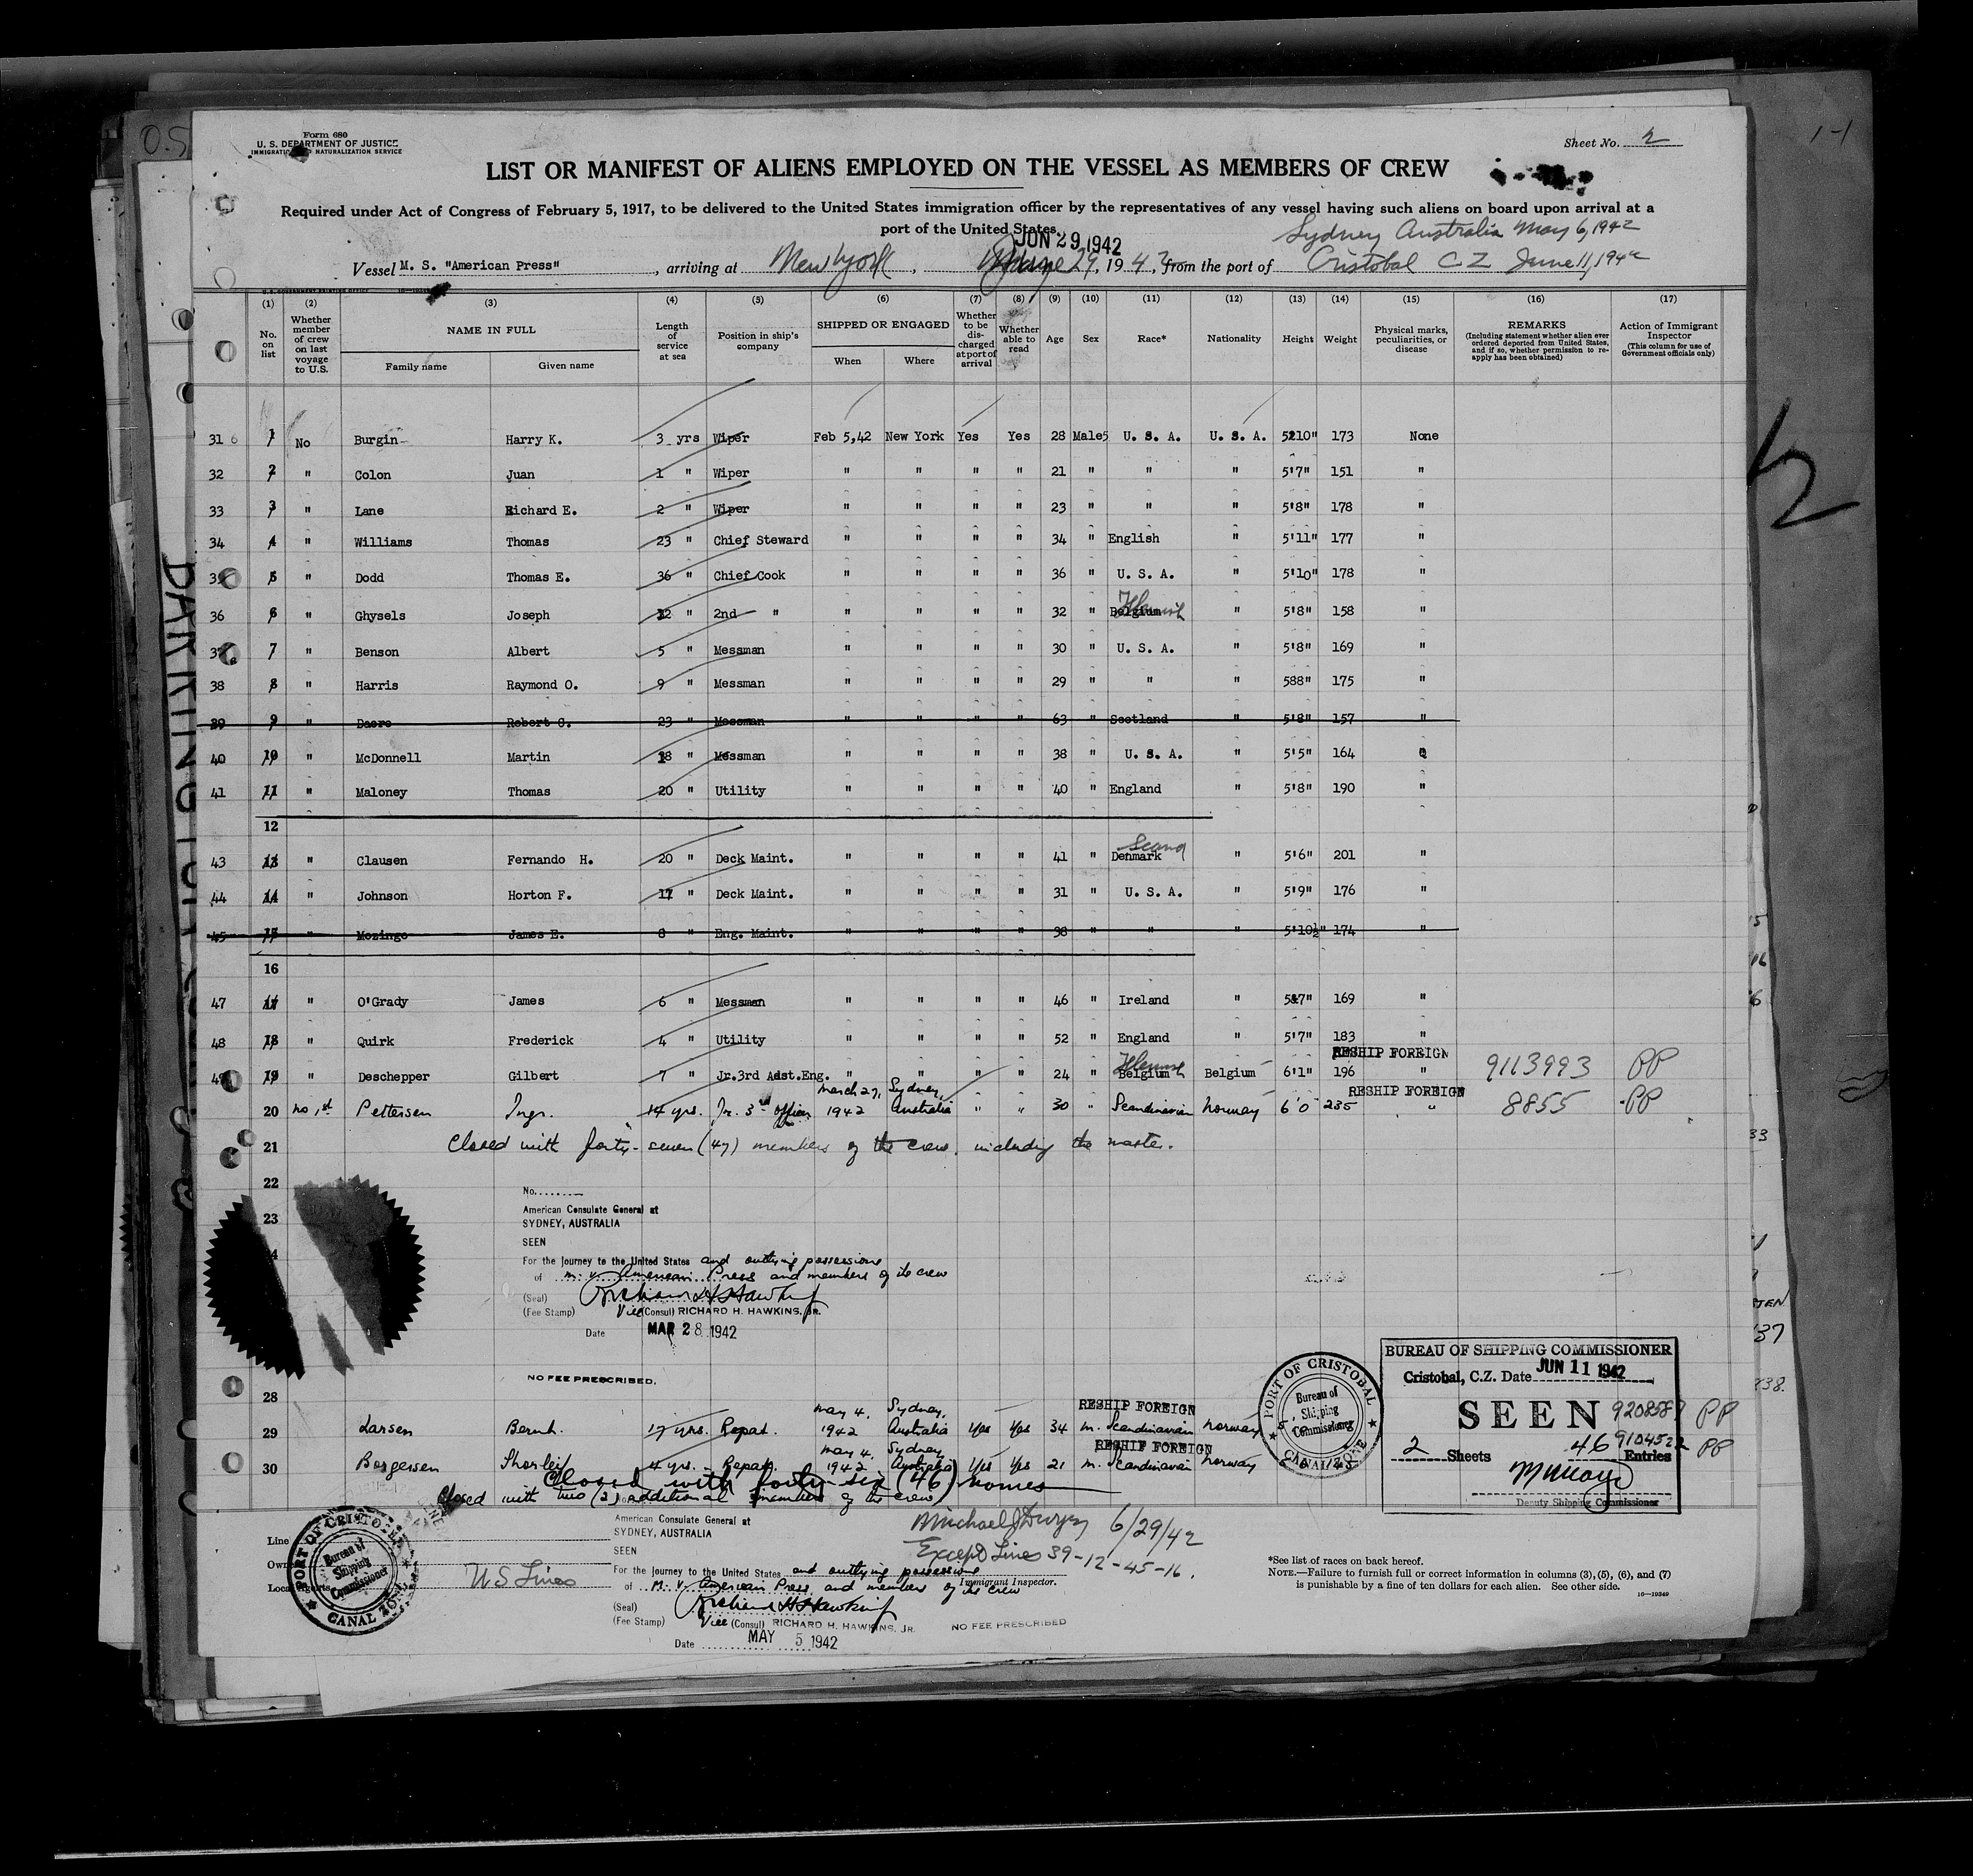 Form 680
U. S. DEPARTMENT OF JUSTICE
IMMIGRATION AND NATURALIZATION SERVICE
Sheet No. 2
LIST OR MANIFEST OF ALIENS EMPLOYED ON THE VESSEL AS MEMBERS OF CREW
Required under Act of Congress of February 5, 1917, to be delivered to the United States immigration officer by the representatives of any vessel having such aliens on board upon arrival at a
port of the United States.
JUN 29 1942
Sydney Australia May 6, 1942
Vessel M. S. "American Press", arriving at New York, June 29, 1942, from the port of Cristobal C Z June 11, 1942
(1) (2) (3) (4) (5) (6) (7) (8) (9) (10) (11) (12) (13) (14) (15) (16) (17)
No. on list
Whether member of crew on last voyage to U.S.
NAME IN FULL
Family name
Given name
Length of service at sea
Position in ship's company
SHIPPED OR ENGAGED
When
Where
Whether to be discharged at port of arrival
Whether able to read
Age
Sex
Race*
Nationality
Height
Weight
Physical marks, peculiarities, or disease
REMARKS
(Including statement whether alien ever ordered deported from United States, and if so, whether permission to reapply has been obtained)
Action of Immigrant Inspector
(This column for use of Government officials only)
31 1 No Burgin Harry K. 3 yrs Wiper Feb 5,42 New York Yes Yes 28 Male U. S. A. U. S. A. 5'10" 173 None
32 2 " Colon Juan 1 " Wiper " " " " 21 " " " 5'7" 151 "
33 3 " Lane Richard E. 2 " Wiper " " " " 23 " " " 5'8" 178 "
34 4 " Williams Thomas 23 " Chief Steward " " " " 34 " English " 5'11" 177 "
35 5 " Dodd Thomas E. 36 " Chief Cook " " " " 36 " U. S. A. " 5'10" 178 "
36 6 " Ghysels Joseph 12 " 2nd " " " " " 32 " Belgium Flemish " 5'8" 158 "
37 7 " Benson Albert 5 " Messman " " " " 30 " U. S. A. " 5'8" 169 "
38 8 " Harris Raymond O. 9 " Messman " " " " 29 " " " 588" 175 "
39 9 " Dacre Robert C. 23 " Messman " " " " 63 " Scotland " 5'8" 157 "
40 10 " McDonnell Martin 18 " Messman " " " " 38 " U. S. A. " 5'5" 164 "
41 11 " Maloney Thomas 20 " Utility " " " " 40 " England " 5'8" 190 "
12
43 13 " Clausen Fernando H. 20 " Deck Maint. " " " " 41 " Denmark Scand " 5'6" 201 "
44 14 " Johnson Horton F. 17 " Deck Maint. " " " " 31 " U. S. A. " 5'9" 176 "
45 15 " Mozingo James E. 8 " Eng. Maint. " " " " 38 " " " 5'10½" 174 "
16
47 17 " O'Grady James 6 " Messman " " " " 46 " Ireland " 5'7" 169 "
48 18 " Quirk Frederick 4 " Utility " " " " 52 " England " 5'7" 183 "
RESHIP FOREIGN
49 19 " Deschepper Gilbert 7 " Jr.3rd Asst.Eng. " " " " 24 " Belgium Flemish Belgium 6'1" 196 " 9113993 PP
RESHIP FOREIGN
20 no 1st Pettersen Ingr. 14 yrs. Jr. 3rd officer March 27, 1942 Sydney, Australia " " 30 " Scandinavian Norway 6'0 235 " 8855 PP
21 Closed with forty-seven (47) members of the crew, including the master.
22
No.
American Consulate General at
SYDNEY, AUSTRALIA
23
SEEN
For the journey to the United States and outlying possessions
of m. v. American Press and members of its crew
(Seal) Richard H Hawkins Jr
(Fee Stamp) Vice (Consul) RICHARD H. HAWKINS, JR.
Date MAR 28 1942
NO FEE PRESCRIBED.
28
RESHIP FOREIGN
29 Larsen Bernt. 17 yrs. Repat. May 4, 1942 Sydney, Australia Yes Yes 34 m. Scandinavian Norway 9208587 PP
RESHIP FOREIGN
30 Borgersen Thorleif 4 yrs. Repat. May 4, 1942 Sydney, Australia Yes Yes 21 m. Scandinavian Norway 9104522 PP
Closed with forty-six (46) names
Closed with two (2) additional members of the crew
PORT OF CRISTOBAL
Bureau of Shipping Commissioner
CANAL ZONE
BUREAU OF SHIPPING COMMISSIONER
Cristobal, C.Z. Date JUN 11 1942
SEEN
2 Sheets 46 Entries
Deputy Shipping Commissioner
PORT OF CRISTOBAL
Bureau of Shipping Commissioner
CANAL ZONE
Line
Owner
Local Agents
US Lines
American Consulate General at
SYDNEY, AUSTRALIA
SEEN
For the journey to the United States and outlying possessions
of M. V. American Press and members of its crew
(Seal) Richard H Hawkins Jr
(Fee Stamp) Vice (Consul) RICHARD H. HAWKINS, JR. NO FEE PRESCRIBED
Date MAY 5 1942
Michael J Dwyer 6/29/42
Except Lines 39-12-45-16.
Immigrant Inspector.
*See list of races on back hereof.
NOTE.—Failure to furnish full or correct information in columns (3), (5), (6), and (7)
is punishable by a fine of ten dollars for each alien. See other side.
16—19349